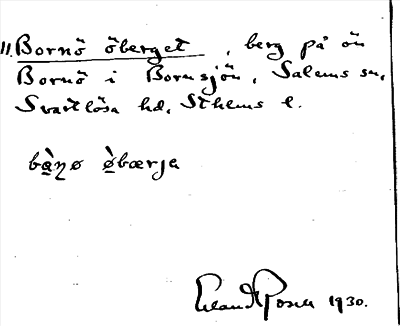 11. Bornö öberget, berg på ön
Bornö i Bornsjön, Salems sn,
Svartlösa hd, Sthlms l.
bà̠ŋø ø̠̀bærja
Erland Rosell 1930.